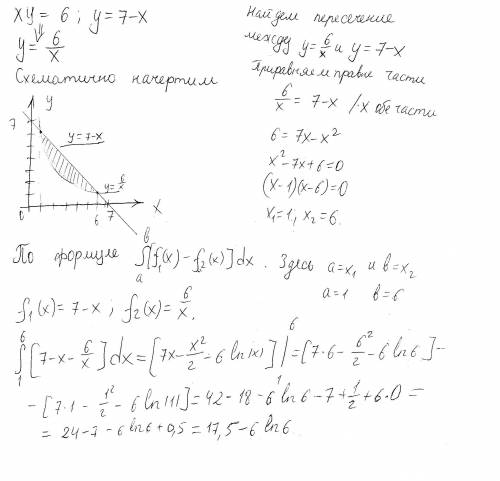 xy = 6 ; y = 7-x
y = 6/x
Схематично начертим
y
7
y=7-x
y=6/x
0
6 7
x
Найдем пересечение
между y=6/x и y=7-x
Приравняем правые части
6/x = 7-x /·x обе части
6 = 7x - x²
x² - 7x + 6 = 0
(x-1)(x-6)=0
x₁=1; x₂=6.
По формуле ∫ₐᵇ[f₁(x) - f₂(x)]dx. Здесь a=x₁ и b=x₂
a=1 b=6
f₁(x) = 7-x ; f₂(x) = 6/x.
∫₁⁶[7-x-6/x]dx = [7x - x²/2 - 6 ln|x|]|₁⁶ = [7·6 - 6²/2 - 6 ln 6] -
- [7·1 - 1²/2 - 6 ln|1|] = 42 - 18 - 6 ln 6 - 7 + 1/2 + 6·0 =
= 24 - 7 - 6 ln 6 + 0,5 = 17,5 - 6 ln 6